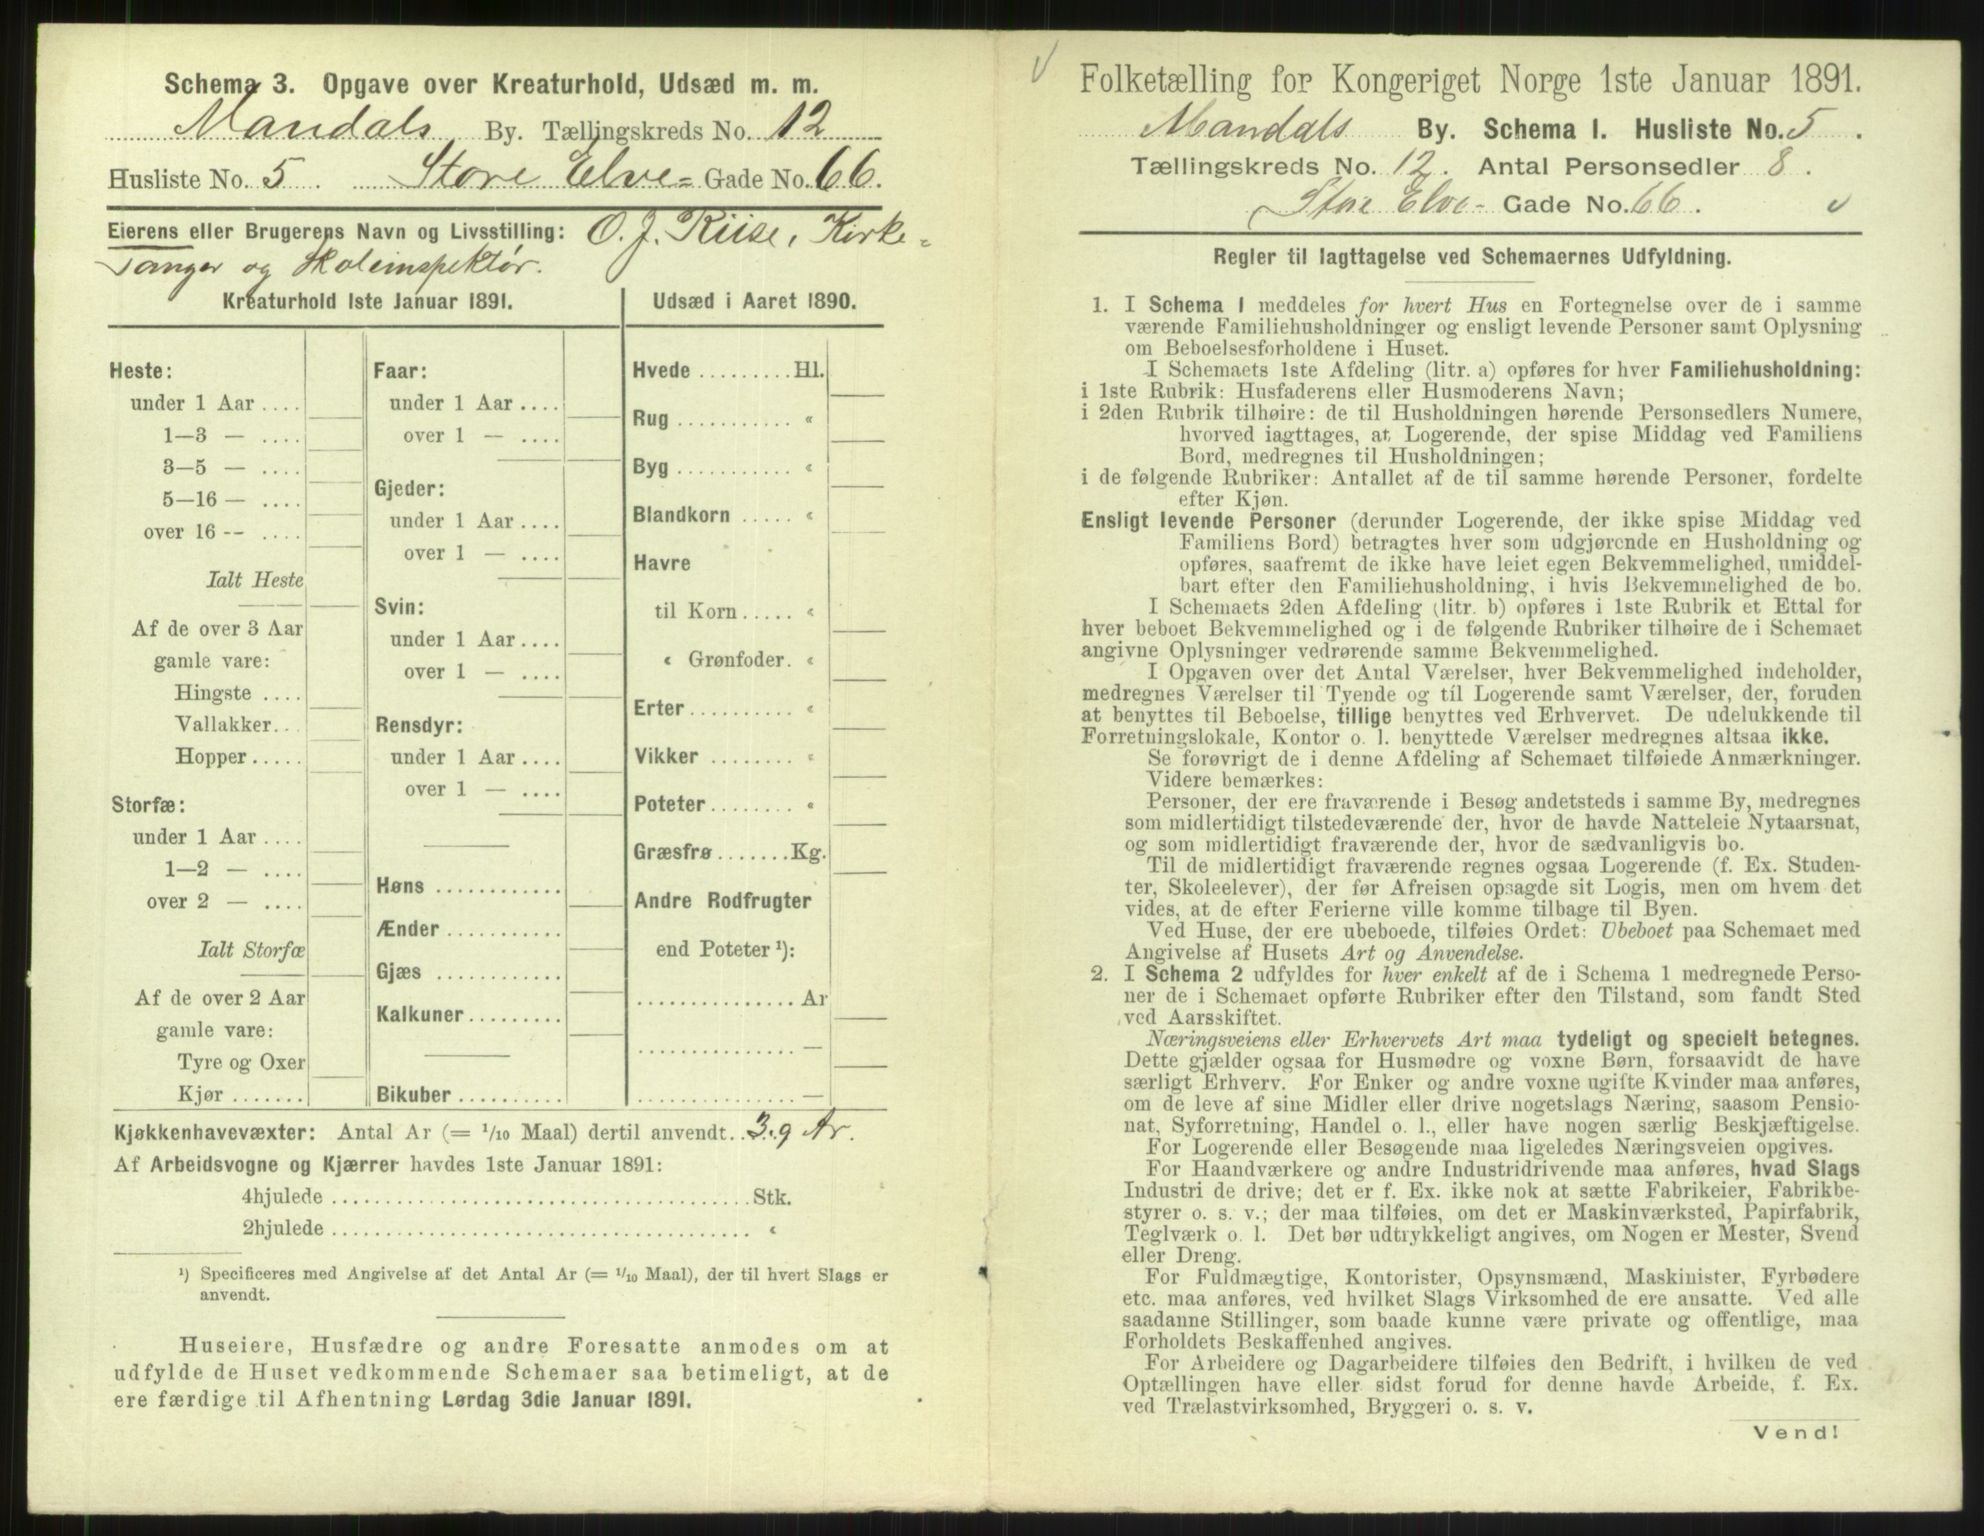 Schema 3. Opgave over Kreaturhold, Udsæd m. m.
Mandals By. Tællingskreds No. 12
Husliste No. 5. Store Elve= Gade No. 66.
Eierens eller Brugerens Navn og Livsstilling: O. J. Riise, Kirke=
sanger og Skoleinspektør.
Kreaturhold 1ste Januar 1891.
Heste:
under 1 Aar ....
1—3 — ....
3—5 — ....
5—16 — ....
over 16 -- ....
Ialt Heste
Af de over 3 Aar
gamle vare:
Hingste ....
Vallakker...
Hopper.....
Storfæ:
under 1 Aar ....
1—2 — ....
over 2 — ....
Ialt Storfæ
Af de over 2 Aar
gamle vare:
Tyre og Oxer
Kjør .......
Faar:
under 1 Aar ....
over 1 — ....
Gjeder:
under 1 Aar ....
over 1 — ....
Svin:
under 1 Aar ....
over 1 — ....
Rensdyr:
under 1 Aar ....
over 1 — ....
Høns ............
Ænder ...........
Gjæs ............
Kalkuner.........
Bikuber ..........
Udsæd i Aaret 1890.
Hvede .........Hl.
Rug ........... «
Byg ........... «
Blandkorn ..... «
Havre
til Korn ..... «
« Grønfoder. «
Erter .......... «
Vikker ........ «
Poteter ........ «
Græsfrø .......Kg.
Andre Rodfrugter
end Poteter ¹):
............... Ar
............... —
............... —
Kjøkkenhavevæxter: Antal Ar (= 1/10 Maal) dertil anvendt.. 3.9 Ar.
Af Arbeidsvogne og Kjærrer havdes 1ste Januar 1891:
4hjulede ........................................Stk.
2hjulede ........................................ «
¹) Specificeres med Angivelse af det Antal Ar (= 1/10 Maal), der til hvert Slags er
anvendt.
Huseiere, Husfædre og andre Foresatte anmodes om at
udfylde de Huset vedkommende Schemaer saa betimeligt, at de
ere færdige til Afhentning Lørdag 3die Januar 1891.
Folketælling for Kongeriget Norge 1ste Januar 1891.
Mandals By. Schema I. Husliste No. 5.
Tællingskreds No. 12. Antal Personsedler 8.
Store Elve- Gade No. 66.
Regler til Iagttagelse ved Schemaernes Udfyldning.
1. I Schema I meddeles for hvert Hus en Fortegnelse over de i samme
værende Familiehusholdninger og ensligt levende Personer samt Oplysning
om Beboelsesforholdene i Huset.
I Schemaets 1ste Afdeling (litr. a) opføres for hver Familiehusholdning:
i 1ste Rubrik: Husfaderens eller Husmoderens Navn;
i 2den Rubrik tilhøire: de til Husholdningen hørende Personsedlers Numere,
hvorved iagttages, at Logerende, der spise Middag ved Familiens
Bord, medregnes til Husholdningen;
i de følgende Rubriker: Antallet af de til samme hørende Personer, fordelte
efter Kjøn.
Ensligt levende Personer (derunder Logerende, der ikke spise Middag ved
Familiens Bord) betragtes hver som udgjørende en Husholdning og
opføres, saafremt de ikke have leiet egen Bekvemmelighed, umiddel-
bart efter den Familiehusholdning, i hvis Bekvemmelighed de bo.
I Schemaets 2den Afdeling (litr. b) opføres i 1ste Rubrik et Ettal for
hver beboet Bekvemmelighed og i de følgende Rubriker tilhøire de i Schemaet
angivne Oplysninger vedrørende samme Bekvemmelighed.
I Opgaven over det Antal Værelser, hver Bekvemmelighed indeholder,
medregnes Værelser til Tyende og til Logerende samt Værelser, der, foruden
at benyttes til Beboelse, tillige benyttes ved Erhvervet. De udelukkende til
Forretningslokale, Kontor o. l. benyttede Værelser medregnes altsaa ikke.
Se forøvrigt de i denne Afdeling af Schemaet tilføiede Anmærkninger.
Videre bemærkes:
Personer, der ere fraværende i Besøg andetsteds i samme By, medregnes
som midlertidigt tilstedeværende der, hvor de havde Natteleie Nytaarsnat,
og som midlertidigt fraværende der, hvor de sædvanligvis bo.
Til de midlertidigt fraværende regnes ogsaa Logerende (f. Ex. Studen-
ter, Skoleelever), der før Afreisen opsagde sit Logis, men om hvem det
vides, at de efter Ferierne ville komme tilbage til Byen.
Ved Huse, der ere ubeboede, tilføies Ordet: Ubeboet paa Schemaet med
Angivelse af Husets Art og Anvendelse.
2. I Schema 2 udfyldes for hver enkelt af de i Schema 1 medregnede Perso-
ner de i Schemaet opførte Rubriker efter den Tilstand, som fandt Sted
ved Aarsskiftet.
Næringsveiens eller Erhvervets Art maa tydeligt og specielt betegnes.
Dette gjælder ogsaa for Husmødre og voxne Børn, forsaavidt de have
særligt Erhverv. For Enker og andre voxne ugifte Kvinder maa anføres,
om de leve af sine Midler eller drive nogetslags Næring, saasom Pensio-
nat, Syforretning, Handel o. l., eller have nogen særlig Beskjæftigelse.
For Logerende eller Besøgende maa ligeledes Næringsveien opgives.
For Haandværkere og andre Industridrivende maa anføres, hvad Slags
Industri de drive; det er f. Ex. ikke nok at sætte Fabrikeier, Fabrikbe-
styrer o. s. v.; der maa tilføies, om det er Maskinværksted, Papirfabrik,
Teglværk o. l. Det bør udtrykkeligt angives, om Nogen er Mester, Svend
eller Dreng.
For Fuldmægtige, Kontorister, Opsynsmænd, Maskinister, Fyrbødere
etc. maa anføres, ved hvilket Slags Virksomhed de ere ansatte. Ved alle
saadanne Stillinger, som baade kunne være private og offentlige, maa
Forholdets Beskaffenhed angives.
For Arbeidere og Dagarbeidere tilføies den Bedrift, i hvilken de ved
Optællingen have eller sidst forud for denne havde Arbeide, f. Ex.
ved Trælastvirksomhed, Bryggeri o. s. v.
Vend!